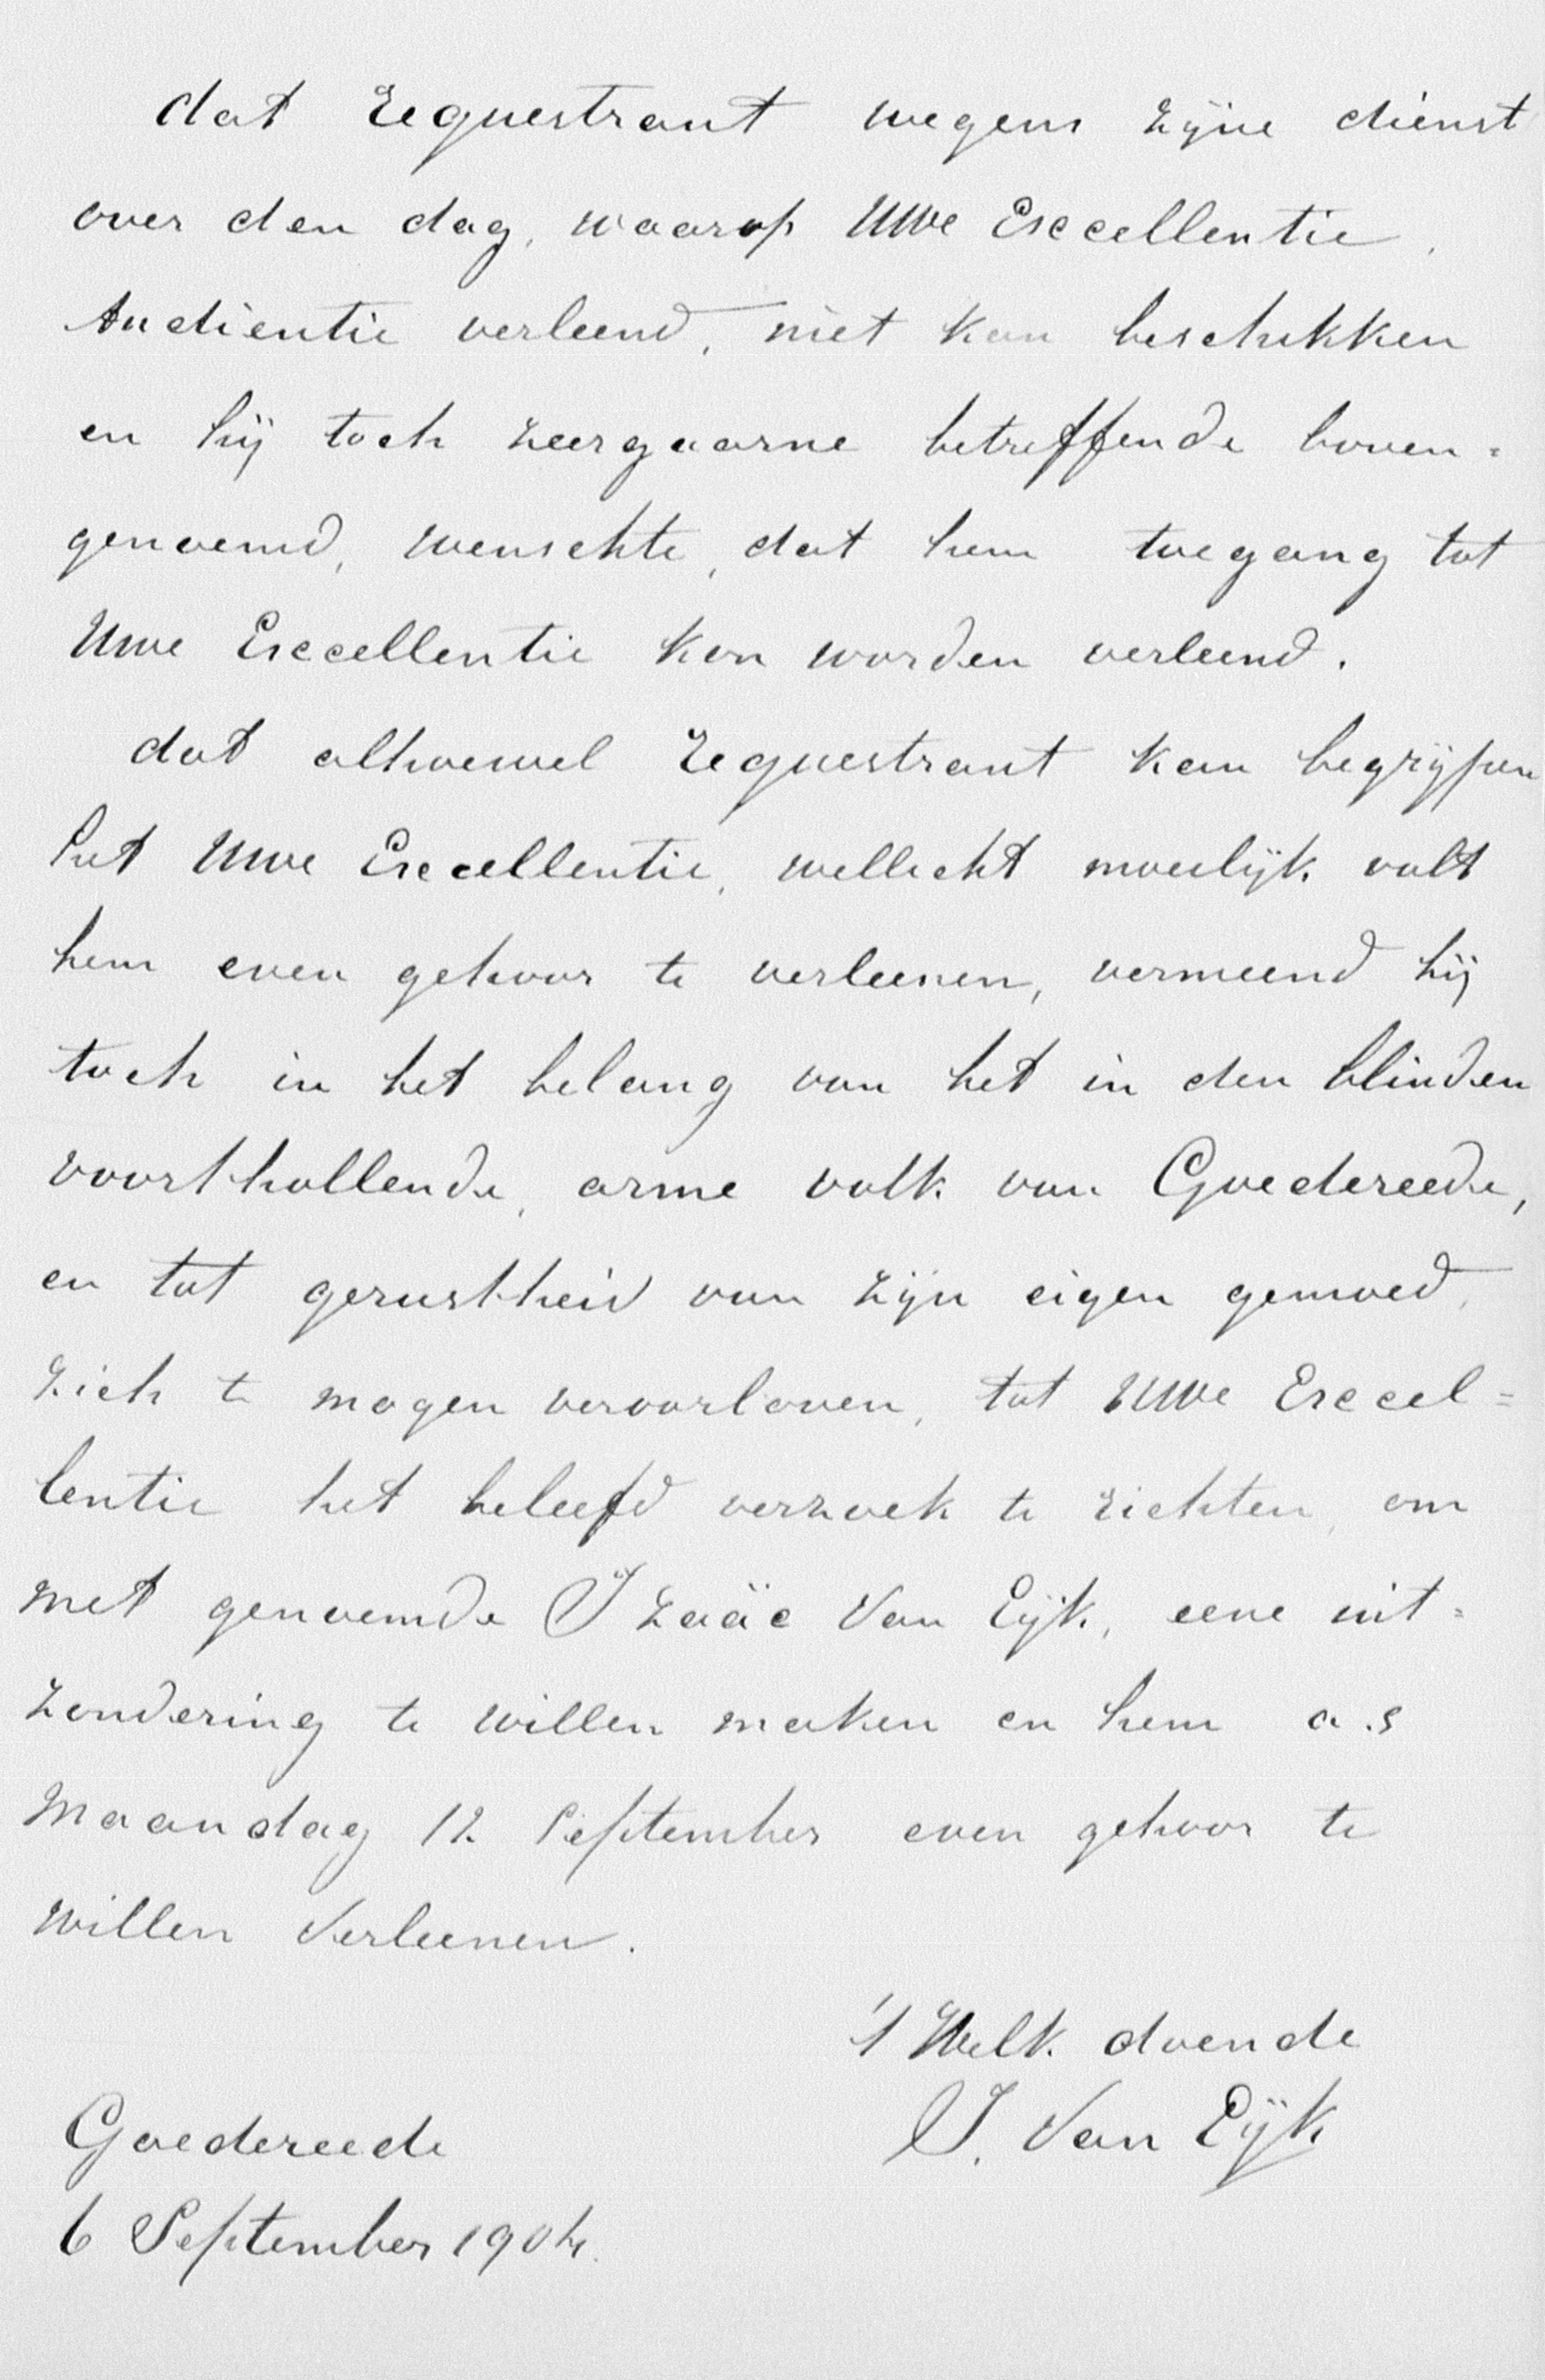 dat requestrant wegens zijne dienst
over den dag, waarop Uwe Excellentie,
Audientie verleend, niet kan beschikken
en hij toch zeergaarne betreffende boven=
genoemd, wenschte, dat hem toegang tot
Uwe Excellentie kon worden verleend.
dat alhoewel requestrant kan begrijpen
het Uwe Excellentie, wellicht moeilijk valt
hem even gehoor te verleenen, vermeend hij
toch in het belang van het in den blinden
voorthollende, arme volk van Goedereede,
en tot gerustheid van zijn eigen gemoed,
zich te mogen veroorloven, tot Uwe Excel=
lentie het beleefd verzoek te richten, om
met genoemde Izaäc Van Eijk, eene uit=
zondering te willen maken en hem a.s
Maandag 12 September even gehoor te
willen Verleenen.
't Welk doende
I. Van Eijk
Goedereede
6 September 1904.